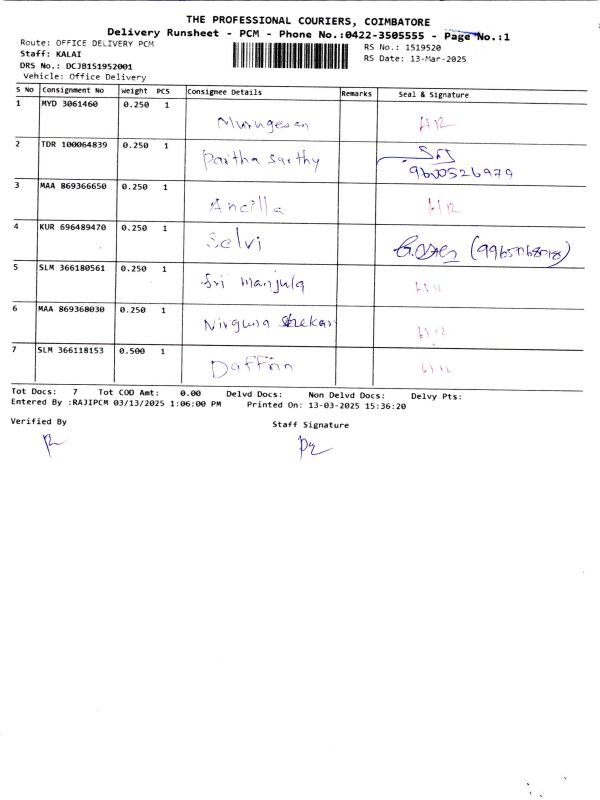 THE PROFESSIONAL COURIERS, COIMBATORE
Delivery Runsheet - PCM - Phone No.:0422-3505555 - Page No.:1
Route: OFFICE DELIVERY PCM
RS No.: 1519520
Staff: KALAI
RS Date: 13-Mar-2025
DRS No.: DCJB151952001
Vehicle: Office Delivery
S No Consignment No Weight PCS Consignee Details Remarks Seal & Signature
1 MYD 3061460 0.250 1
Murugesan
2 TDR 100064839 0.250 1
Partha Sarthy 9600526979
3 MAA 869366650 0.250 1
Ancilla
4 KUR 696489470 0.250 1
Selvi
5 SLM 366180561 0.250 1
Sri Manjula
6 MAA 869368030 0.250 1
Nirguna Shekar
7 SLM 366118153 0.500 1
Daffin
Tot Docs: 7 Tot COD Amt: 0.00 Delvd Docs: Non Delvd Docs: Delvy Pts:
Entered By :RAJIPCM 03/13/2025 1:06:00 PM Printed On: 13-03-2025 15:36:20
Verified By
Staff Signature